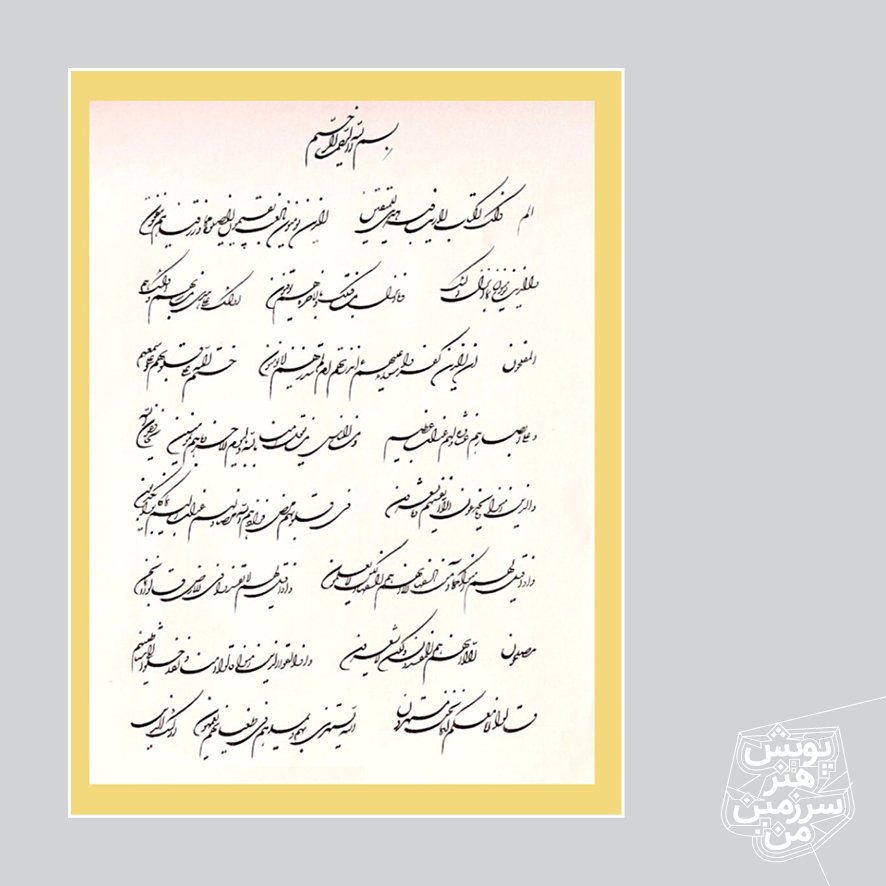 بسم الله الرحمن الرحیم
الم ذلک الکتاب لاریب فیه هدی للمتقین الذین یؤمنون بالغیب و یقیمون الصلوة و مما رزقناهم ینفقون
والذین یؤمنون بما انزل الیک و ما انزل من قبلک و بالاخرة هم یوقنون اولئک علی هدی من ربهم و اولئک هم
المفلحون ان الذین کفروا سواء علیهم ءانذرتهم ام لم تنذرهم لا یؤمنون ختم الله علی قلوبهم و علی سمعهم
و علی ابصارهم غشاوة و لهم عذاب عظیم و من الناس من یقول امنا بالله و بالیوم الاخر و ما هم بمؤمنین یخادعون الله
والذین امنوا و ما یخدعون الا انفسهم و ما یشعرون فی قلوبهم مرض فزادهم الله مرضا و لهم عذاب الیم بما کانوا یکذبون
و اذا قیل لهم امنوا کما آمن السفهاء الا انهم هم السفهاء ولکن لا یعلمون و اذا قیل لهم لا تفسدوا فی الارض قالوا انما نحن
مصلحون الا انهم هم المفسدون ولکن لا یشعرون و اذا لقوا الذین امنوا قالوا امنا و اذا خلوا الی شیاطینهم
قالوا انا معکم انما نحن مستهزءون الله یستهزئ بهم و یمدهم فی طغیانهم یعمهون اولئک الذین
پویش
هنر
سرزمین
من